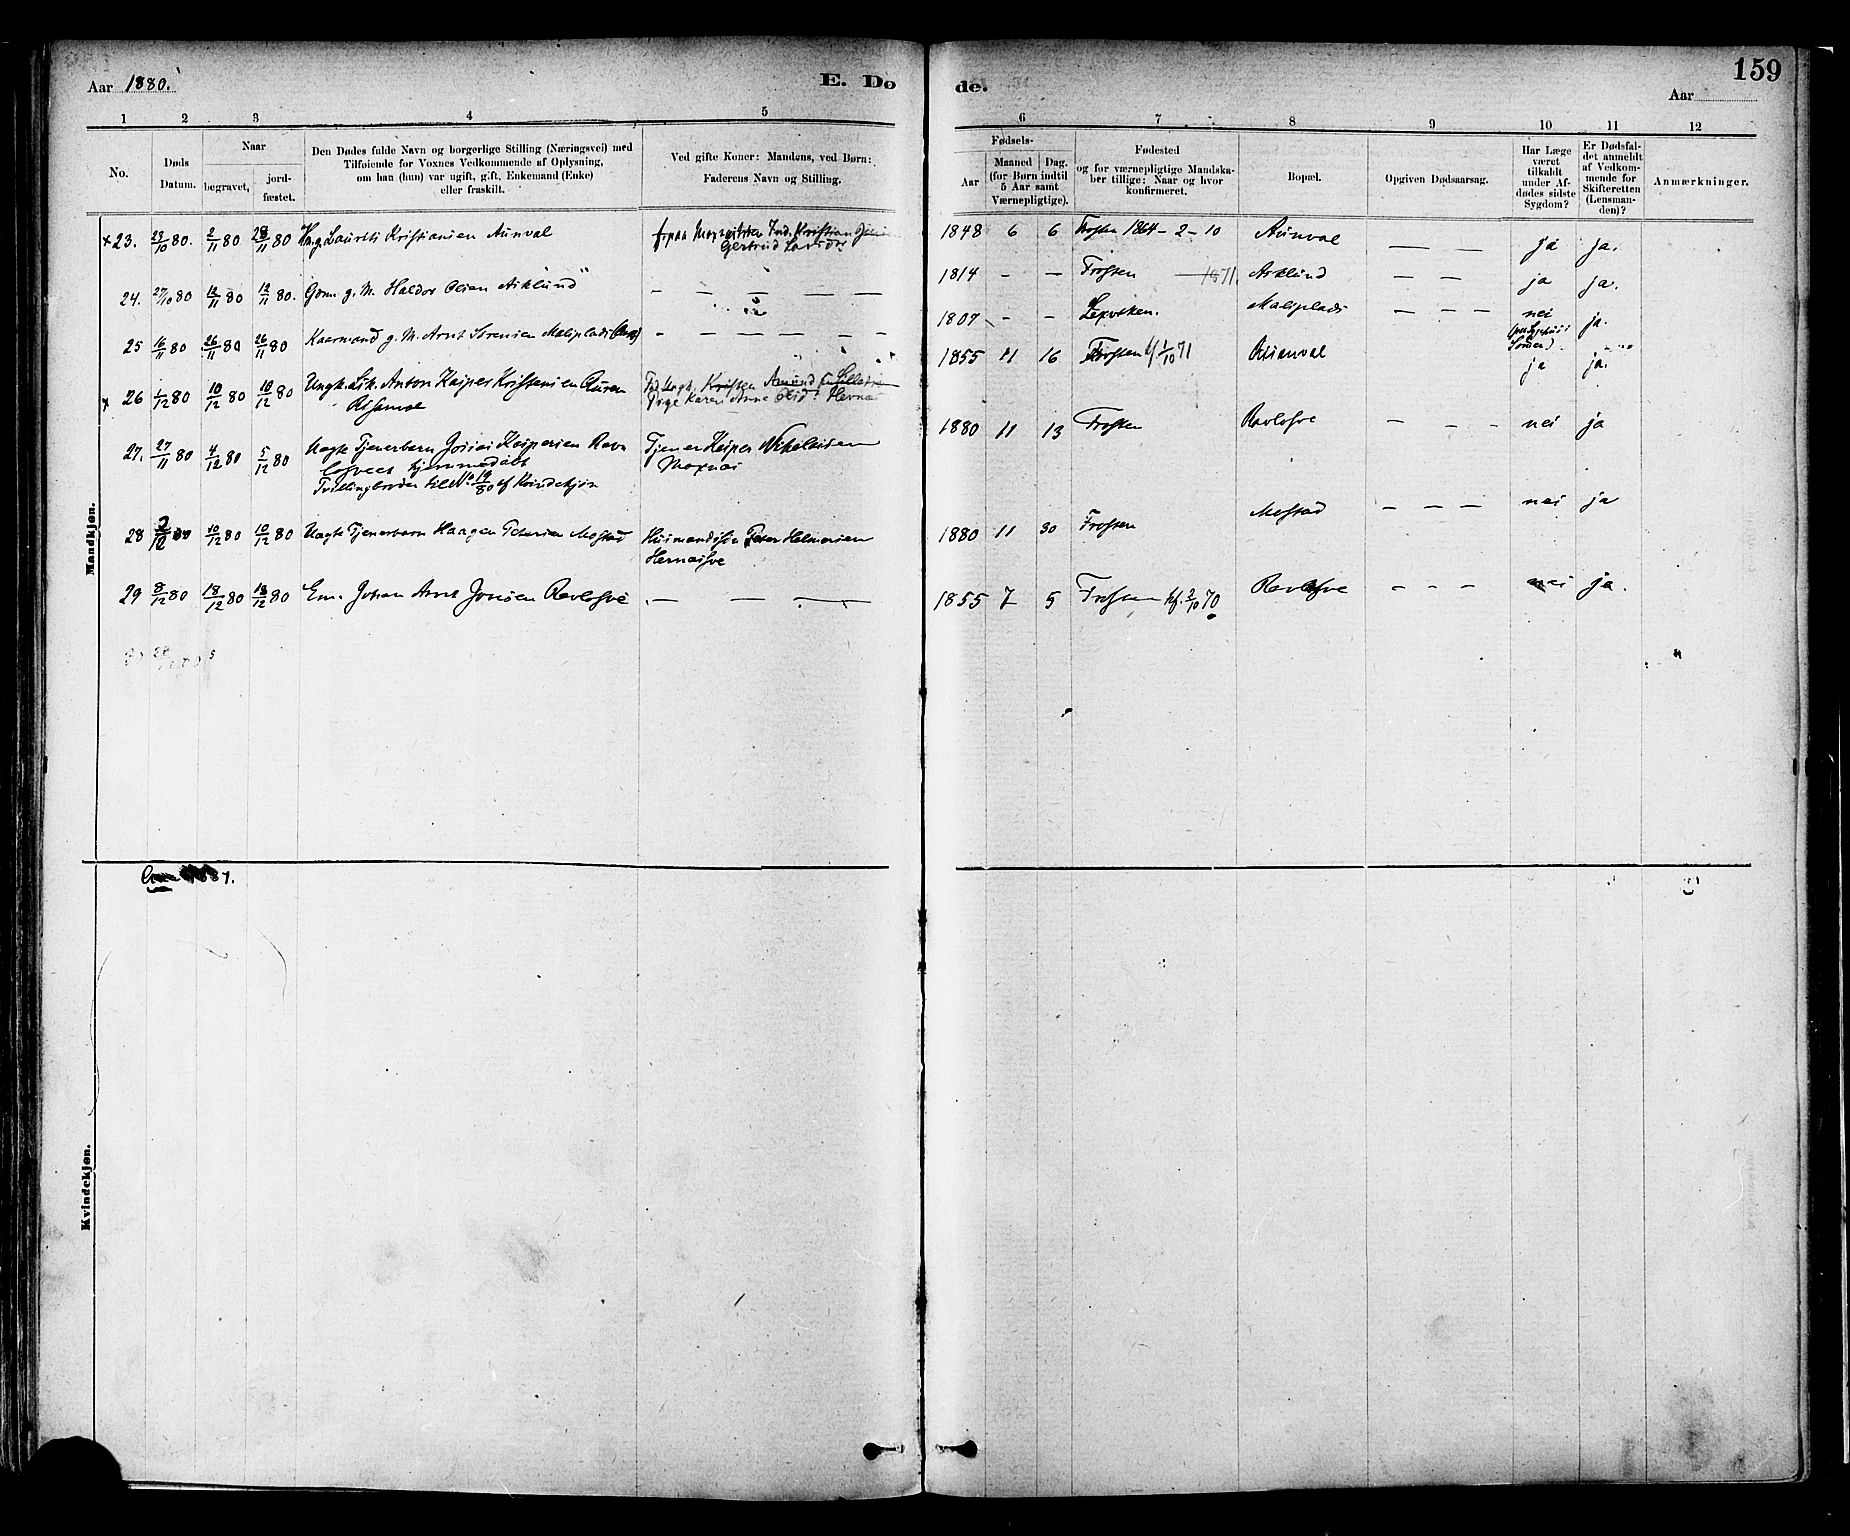 Aar 1880.
E. Dø
de.
159
Aar
1 2 3 4 5 6 7 8 9 10 11 12
No.
Døds Datum.
Naar
begravet,
jord-
fæstet.
Den Dødes fulde Navn og borgerlige Stilling (Næringsvei) med
Tilføiende for Voxnes Vedkommende af Oplysning,
om han (hun) var ugift, gift, Enkemand (Enke)
eller fraskilt.
Ved gifte Koner: Mandens, ved Børn:
Faderens Navn og Stilling.
Fødsels-
Aar
Maaned
(for Børn indtil
5 Aar samt
Værnepligtige).
Dag.
Fødested
og for værnepligtige Mandska-
ber tillige: Naar og hvor
konfirmeret.
Bopæl.
Opgiven Dødsaarsag.
Har Læge
været
tilkaldt
under Af-
dødes sidste
Sygdom?
Er Dødsfal-
det anmeldt
af Vedkom-
mende for
Skifteretten
(Lensman-
den)?
Anmærkninger.
Mandkjøn.
x 23. 23/10 80. 2/11 80 /11 80 Ung. Laurits Kristiansen Aunval 1848 6 6 Frosten 1864 - 2 - 10 Aunval — — ja ja.
24. 27/10 80 12/11 80 12/11 80. g. M. Haldor Olsen Asklund — — — — — 1814 - — Frosten 1871. Asklund — — ja ja.
25 16/11 80 26/11 80 26/11 80 Kaarmand g. M. Arnt Sørensen Malsplads — — — — — 1807 - - Lexviken. Malsplads — — — nei ja.
x 26 1/12 80 10/12 80 10/12 80 Ungk. Anton Kasper Kristensen
Risanval
Pige Karen Anne
1855 11 16 Frosten 1/10 71 Risanval ja ja.
27. 27/11 80 4/12 80 5/12 80 Uægte Tjenerbarn Kaspersen Ravlo
hjemmedøbt
Tvillingbroder til No 19/80 af Kvindekjøn
Tjener Kasper Nikolaisen
Moxnes
1880 11 13 Frosten - - - nei ja
28 /12 10/12 80 10/12 80 Uægte Tjenerbarn Haagen Petersen Mostad Husmandssøn Peter Helmersen
1880 11 30 Frosten Mostad - - - nei ja
29 8/12 80 18/12 80 18/12 80 Em. Johan Arnt Jonsen — — — 1855 7 5 Frosten kf. 2/10 70 - - — nei ja.
1881.
Kvindekjøn.